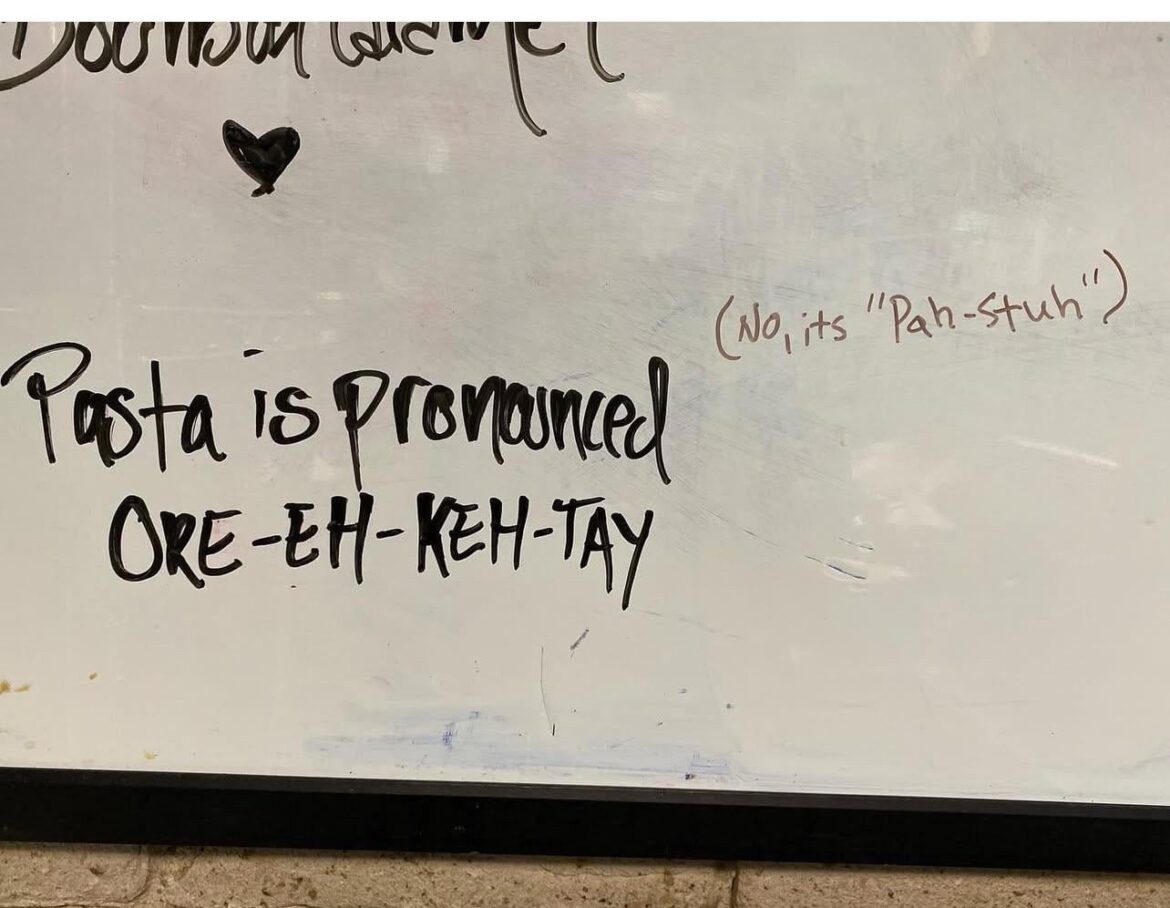 Bourbon Caramel
(No, its "Pah-stuh")
Pasta is pronounced
ORE-EH-KEH-TAY